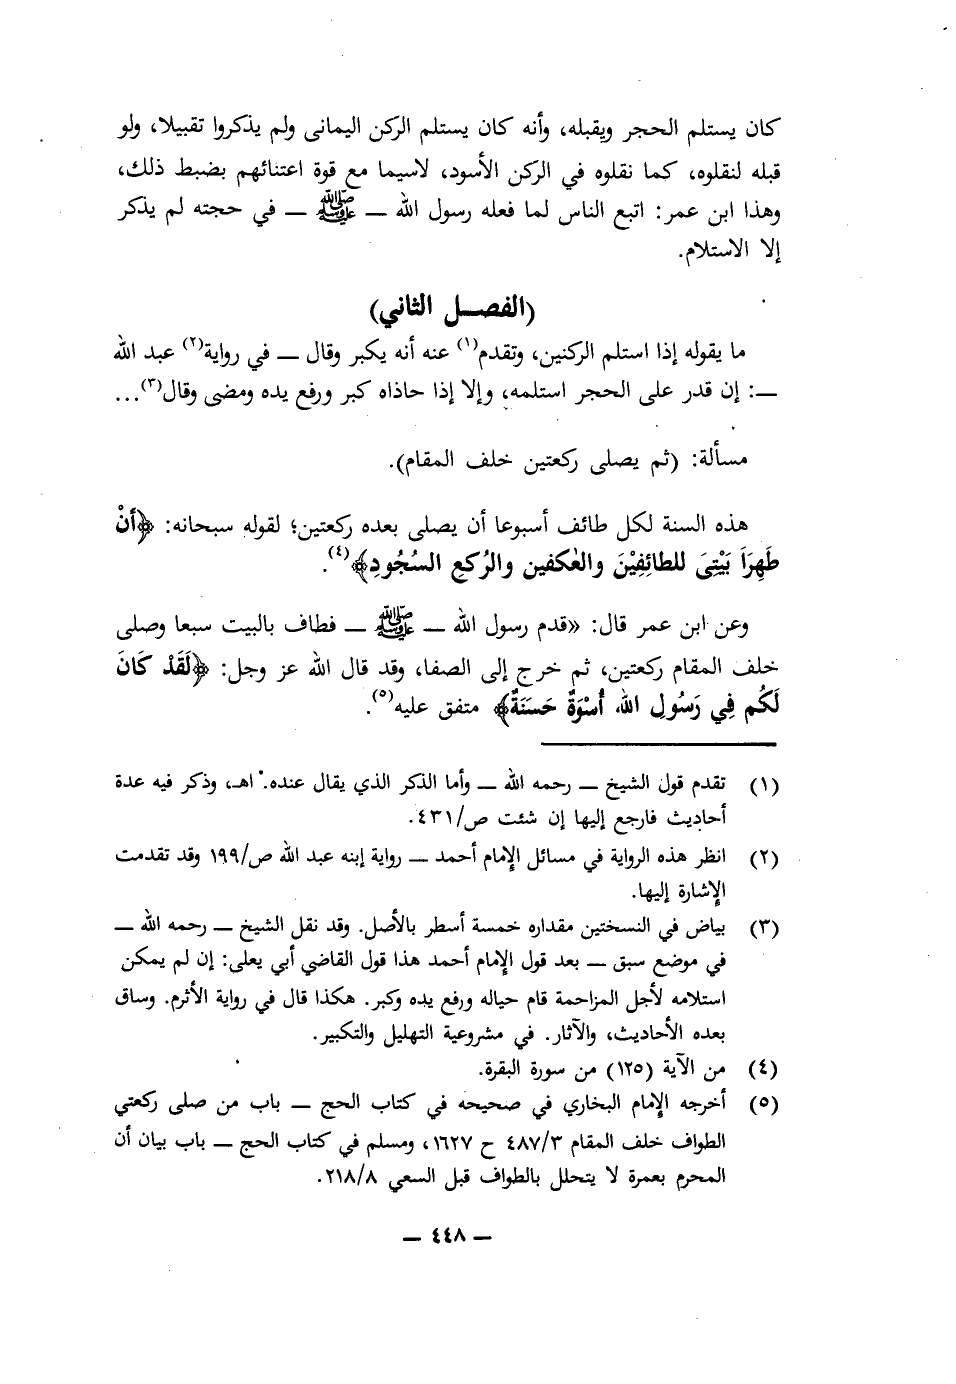 كان يستلم الحجر ويقبله، وأنه كان يستلم الركن اليمانى ولم يذكروا تقبيلا، ولو
قبله لنقلوه، كما نقلوه في الركن الأسود، لاسيما مع قوة اعتنائهم بضبط ذلك،
وهذا ابن عمر: اتبع الناس لما فعله رسول الله ــ ﷺ ــ في حجته لم يذكر
إلا الاستلام.
(الفصــل الثاني)
ما يقوله إذا استلم الركنين، وتقدم(١) عنه أنه يكبر وقال ــ في رواية(٢) عبد الله
ــ: إن قدر على الحجر استلمه، وإلا إذا حاذاه كبر ورفع يده ومضى وقال(٣)...
مسألة: (ثم يصلى ركعتين خلف المقام).
هذه السنة لكل طائف أسبوعا أن يصلى بعده ركعتين؛ لقوله سبحانه: ﴿أَنْ
طَهِرَا بَيْتِىَ للطائِفِيْنَ والعٰكفين والرُكعِ السُجُودِ﴾(٤).
وعن ابن عمر قال: «قدم رسول الله ــ ﷺ ــ فطاف بالبيت سبعا وصلى
خلف المقام ركعتين، ثم خرج إلى الصفا، وقد قال الله عز وجل: ﴿لَقَدْ كَانَ
لَكُم فِي رَسُولِ اللهِ أُسْوَةٌ حَسَنَةٌ﴾ متفق عليه(٥).
(١) تقدم قول الشيخ ــ رحمه الله ــ وأما الذكر الذي يقال عنده. اهـ، وذكر فيه عدة
أحاديث فارجع إليها إن شئت ص/٤٣١.
(٢) انظر هذه الرواية في مسائل الإمام أحمد ــ رواية إبنه عبد الله ص/١٩٩ وقد تقدمت
الإشارة إليها.
(٣) بياض في النسختين مقداره خمسة أسطر بالأصل. وقد نقل الشيخ ــ رحمه الله ــ
في موضع سبق ــ بعد قول الإمام أحمد هذا قول القاضي أبي يعلى: إن لم يمكن
استلامه لأجل المزاحمة قام حياله ورفع يده وكبر. هكذا قال في رواية الأثرم. وساق
بعده الأحاديث، والآثار. في مشروعية التهليل والتكبير.
(٤) من الآية (١٢٥) من سورة البقرة.
(٥) أخرجه الإمام البخاري في صحيحه في كتاب الحج ــ باب من صلى ركعتي
الطواف خلف المقام ٤٨٧/٣ ح ١٦٢٧، ومسلم في كتاب الحج ــ باب بيان أن
المحرم بعمرة لا يتحلل بالطواف قبل السعي ٢١٨/٨.
ــ ٤٤٨ ــ